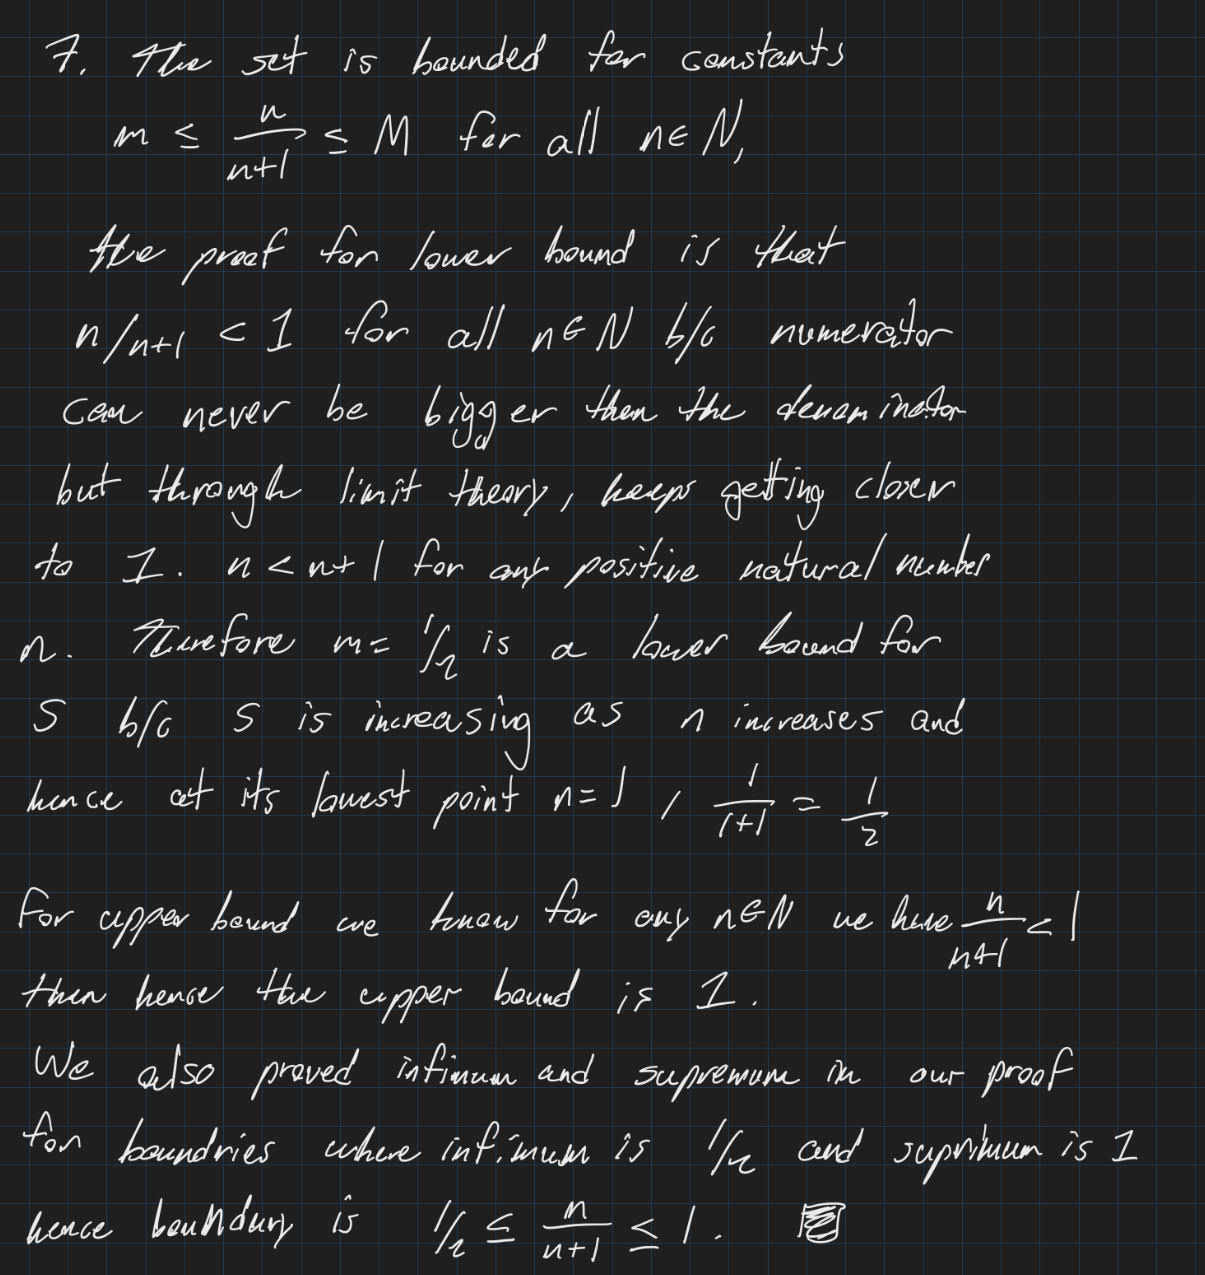 7. The set is bounded for constants
m ≤ n/(n+1) ≤ M for all n∈N,
the proof for lower bound is that
n/n+1 < 1 for all n∈N b/c numerator
can never be bigger then the denominator
but through limit theory, keeps getting closer
to 1. n < n+1 for any positive natural number
n. Therefore m = 1/2 is a lower bound for
S b/c S is increasing as n increases and
hence at its lowest point n=1, 1/(1+1) = 1/2
For upper bound we know for any n∈N we have n/(n+1) < 1
then hence the upper bound is 1.
We also proved infimum and supremum in our proof
for boundries where infimum is 1/2 and suprimum is 1
hence boundury is 1/2 ≤ n/(n+1) ≤ 1.